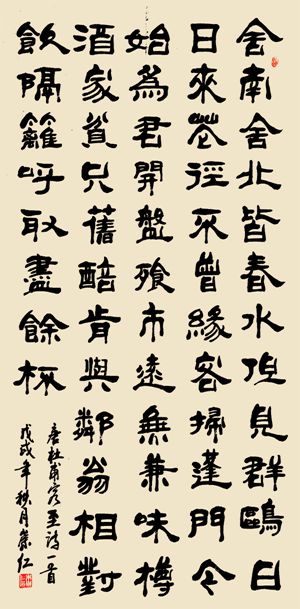 舍南舍北皆春水但見群鷗日
日來花徑不曾緣客掃蓬門今
始爲君開盤飧市遠無兼味樽
酒家貧只舊醅肯與鄰翁相對
飲隔籬呼取盡餘杯
唐杜甫客至詩一首
戊戌年秋月